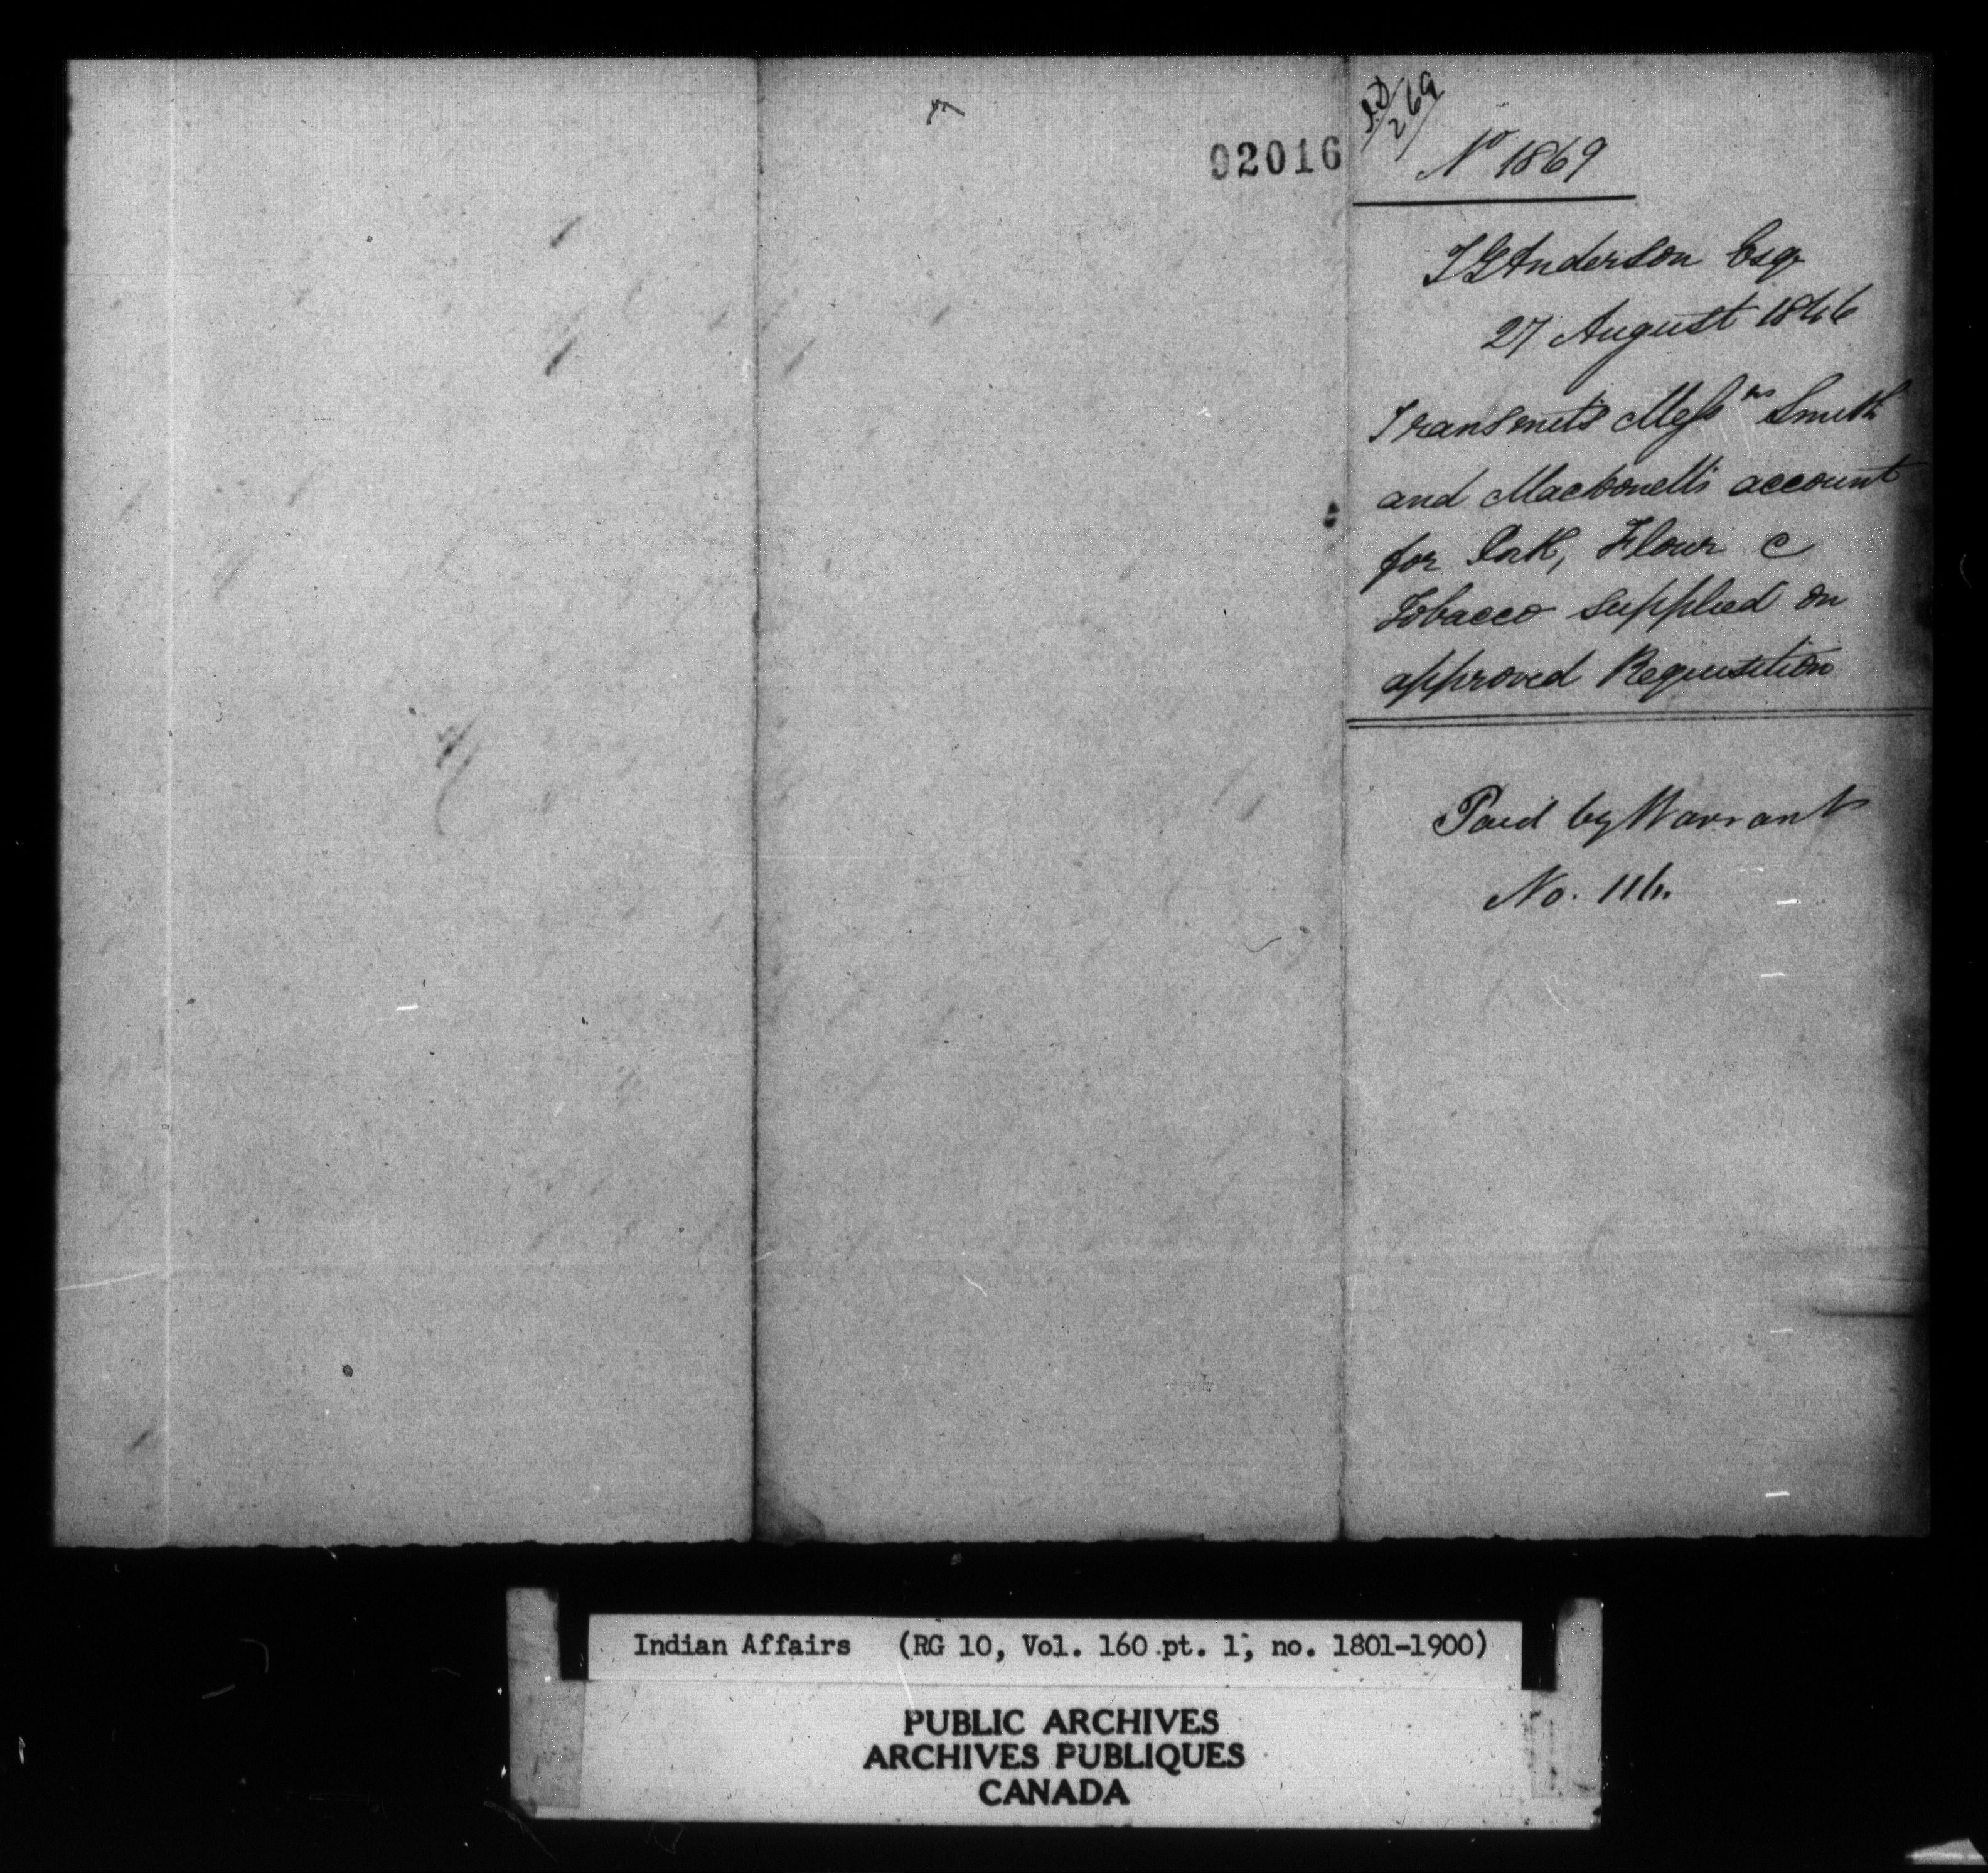 92016
269
No 1869
T G Anderson Esqr
27 August 1846
Transmits Messrs Smith
and Macdonell's account
for Pork, Flour &
Tobacco supplied on
approved Requisition
Paid by Warrant
No. 116.
Indian Affairs (RG 10, Vol. 160 pt. 1, no. 1801-1900)
PUBLIC ARCHIVES
ARCHIVES PUBLIQUES
CANADA